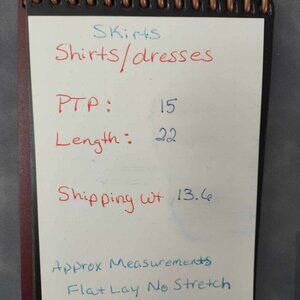 Skirts
Shirts/dresses
PTP: 15
Length: 22
Shipping wt 13.6
Approx Measurements
Flat Lay No Stretch